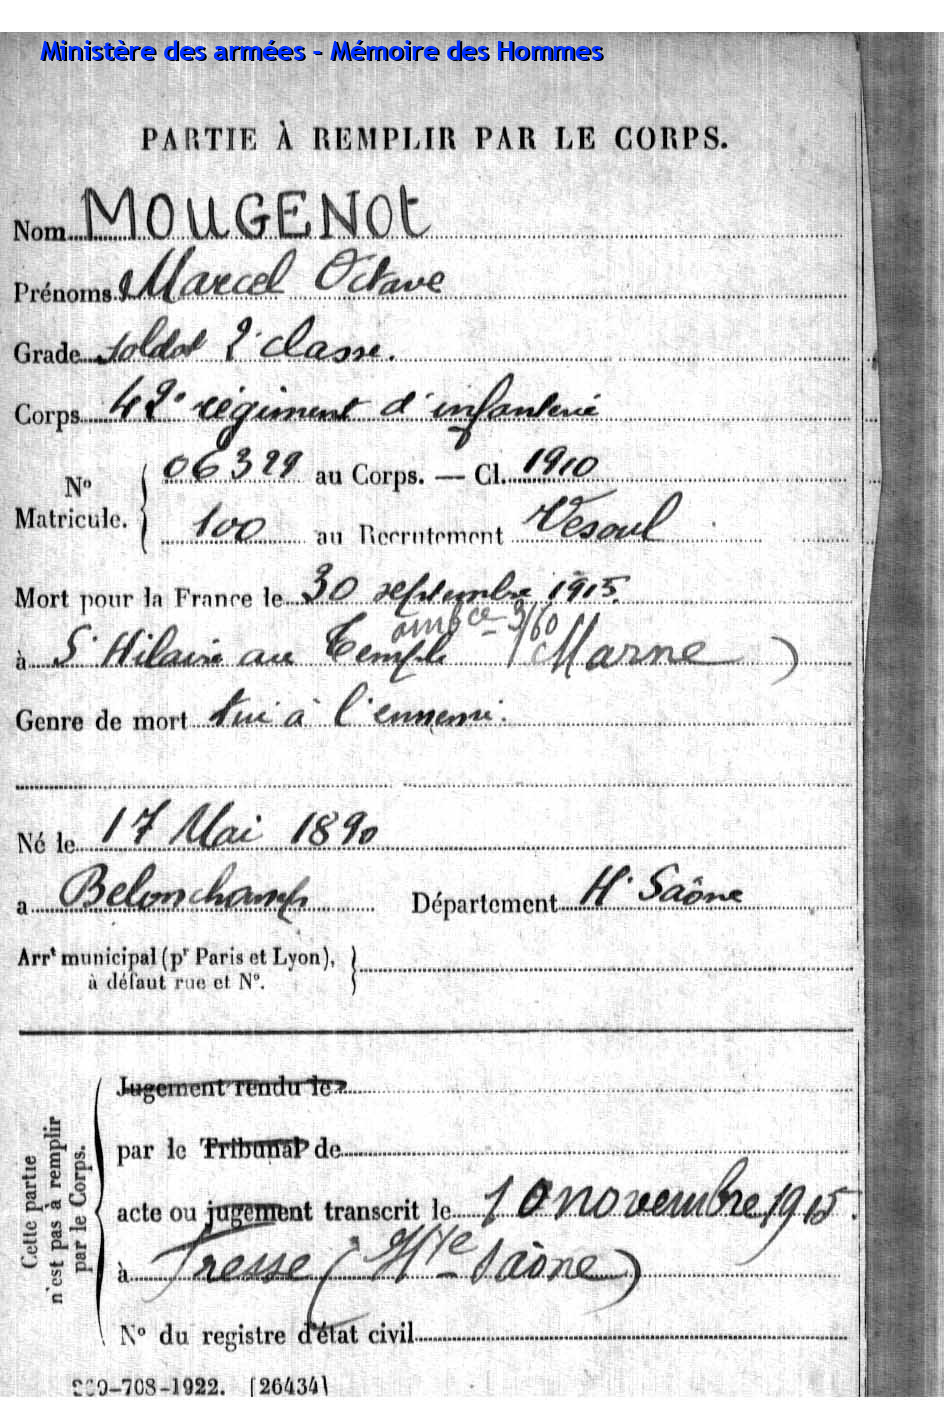 Ministère des armées - Mémoire des Hommes
PARTIE À REMPLIR PAR LE CORPS.
Nom MOUGENOt
Prénoms Marcel Octave
Grade soldat 2e classe.
Corps 42e régiment d'infanterie
No Matricule. { 06329 au Corps. — Cl. 1910
100 au Recrutement Vesoul
Mort pour la France le 30 septembre 1915.
ambce 3/60
à St Hilaire au Temple (Marne)
Genre de mort tué à l'ennemi.
Né le 17 Mai 1890
a Belonchamp Département Hte Saône
Arrt municipal (pr Paris et Lyon), }
à défaut rue et No.
Cette partie n'est pas à remplir par le Corps.
Jugement rendu le
par le Tribunal de
acte ou jugement transcrit le 10 novembre 1915.
à Fresse (Hte Saône)
No du registre d'état civil
708-1922. [26434]